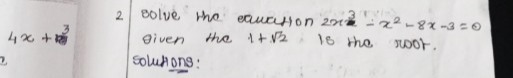 2 solve the equation 2x³ - x² - 8x - 3 = 0
4x + 3
given the 1+√2 is the root.
solutions: